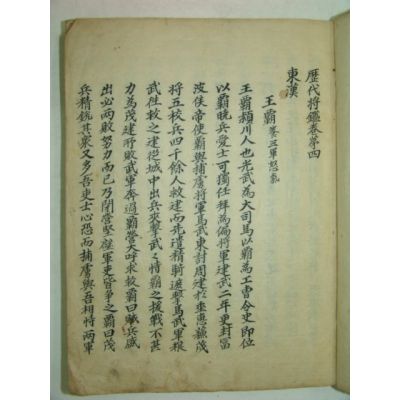 歷代將鑑卷第四
東漢
王霸 養三軍怒氣
王霸潁川人也光武為大司馬以霸為工曹令史即位
以霸曉兵愛士可獨任拜為偏將軍建武二年更封富
波侯帝使霸與捕虜將軍馬武東討周建於垂惠蘇茂
將五校兵四千餘人救建而先遣精騎遮擊馬武軍粮
武徃救之建從城中出兵夾擊武武恃霸之援戰不甚
力為茂建所敗武軍奔過霸營大呼求救霸曰賊兵盛
出必兩敗努力而已乃閉營堅壁軍吏皆爭之霸曰茂
兵精銳其衆又多吾吏士心恐而捕虜與吾相恃兩軍